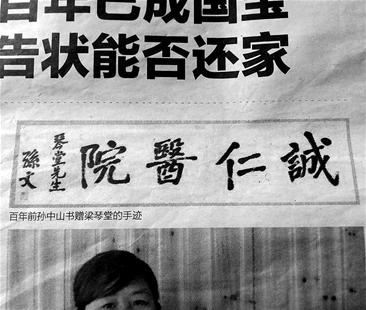 百年已成国宝
告状能否还家
誠仁醫院
琴堂先生
孫文
百年前孙中山书赠梁琴堂的手迹